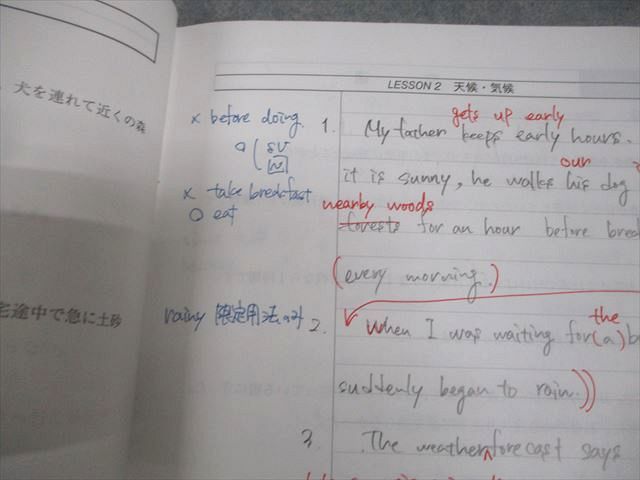 、犬を連れて近くの森
宅途中で急に土砂
LESSON 2 天候・気候
gets up early
× before doing.
1. My father keeps early hours.
○ ( SV
N
our
it is sunny, he walks his dog
× take breakfast
○ eat
nearby woods
forests for an hour before brea
(every morning.)
rainy 限定用法のみ
the
2. When I was waiting for (a) b
suddenly began to rain.))
3. The weather forecast says